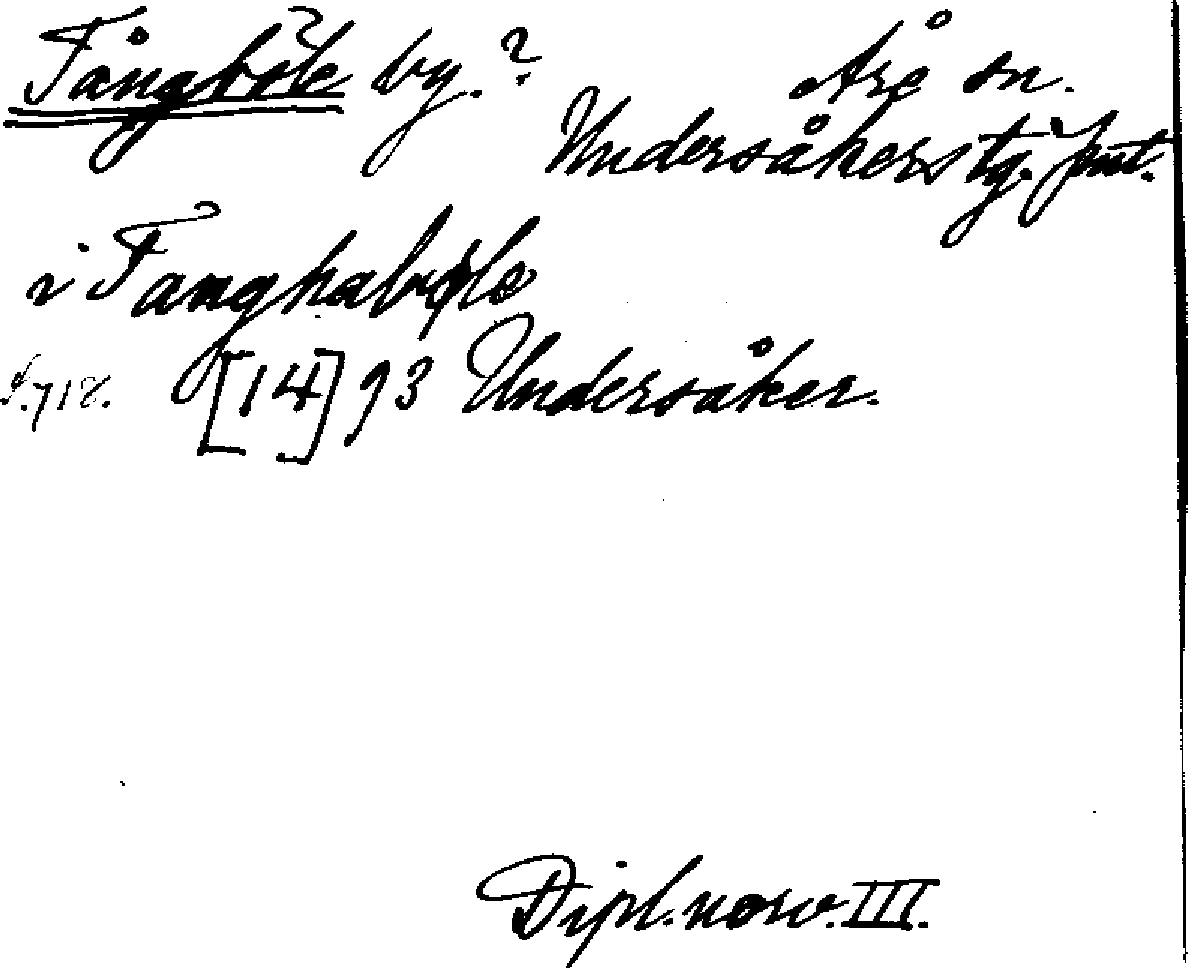 Fångböle by.? Åre sn.
Undersåkers tg. Jmt.
i Fanghabøle
S. 718. [14]93 Undersåker.
Dipl. norv. III.